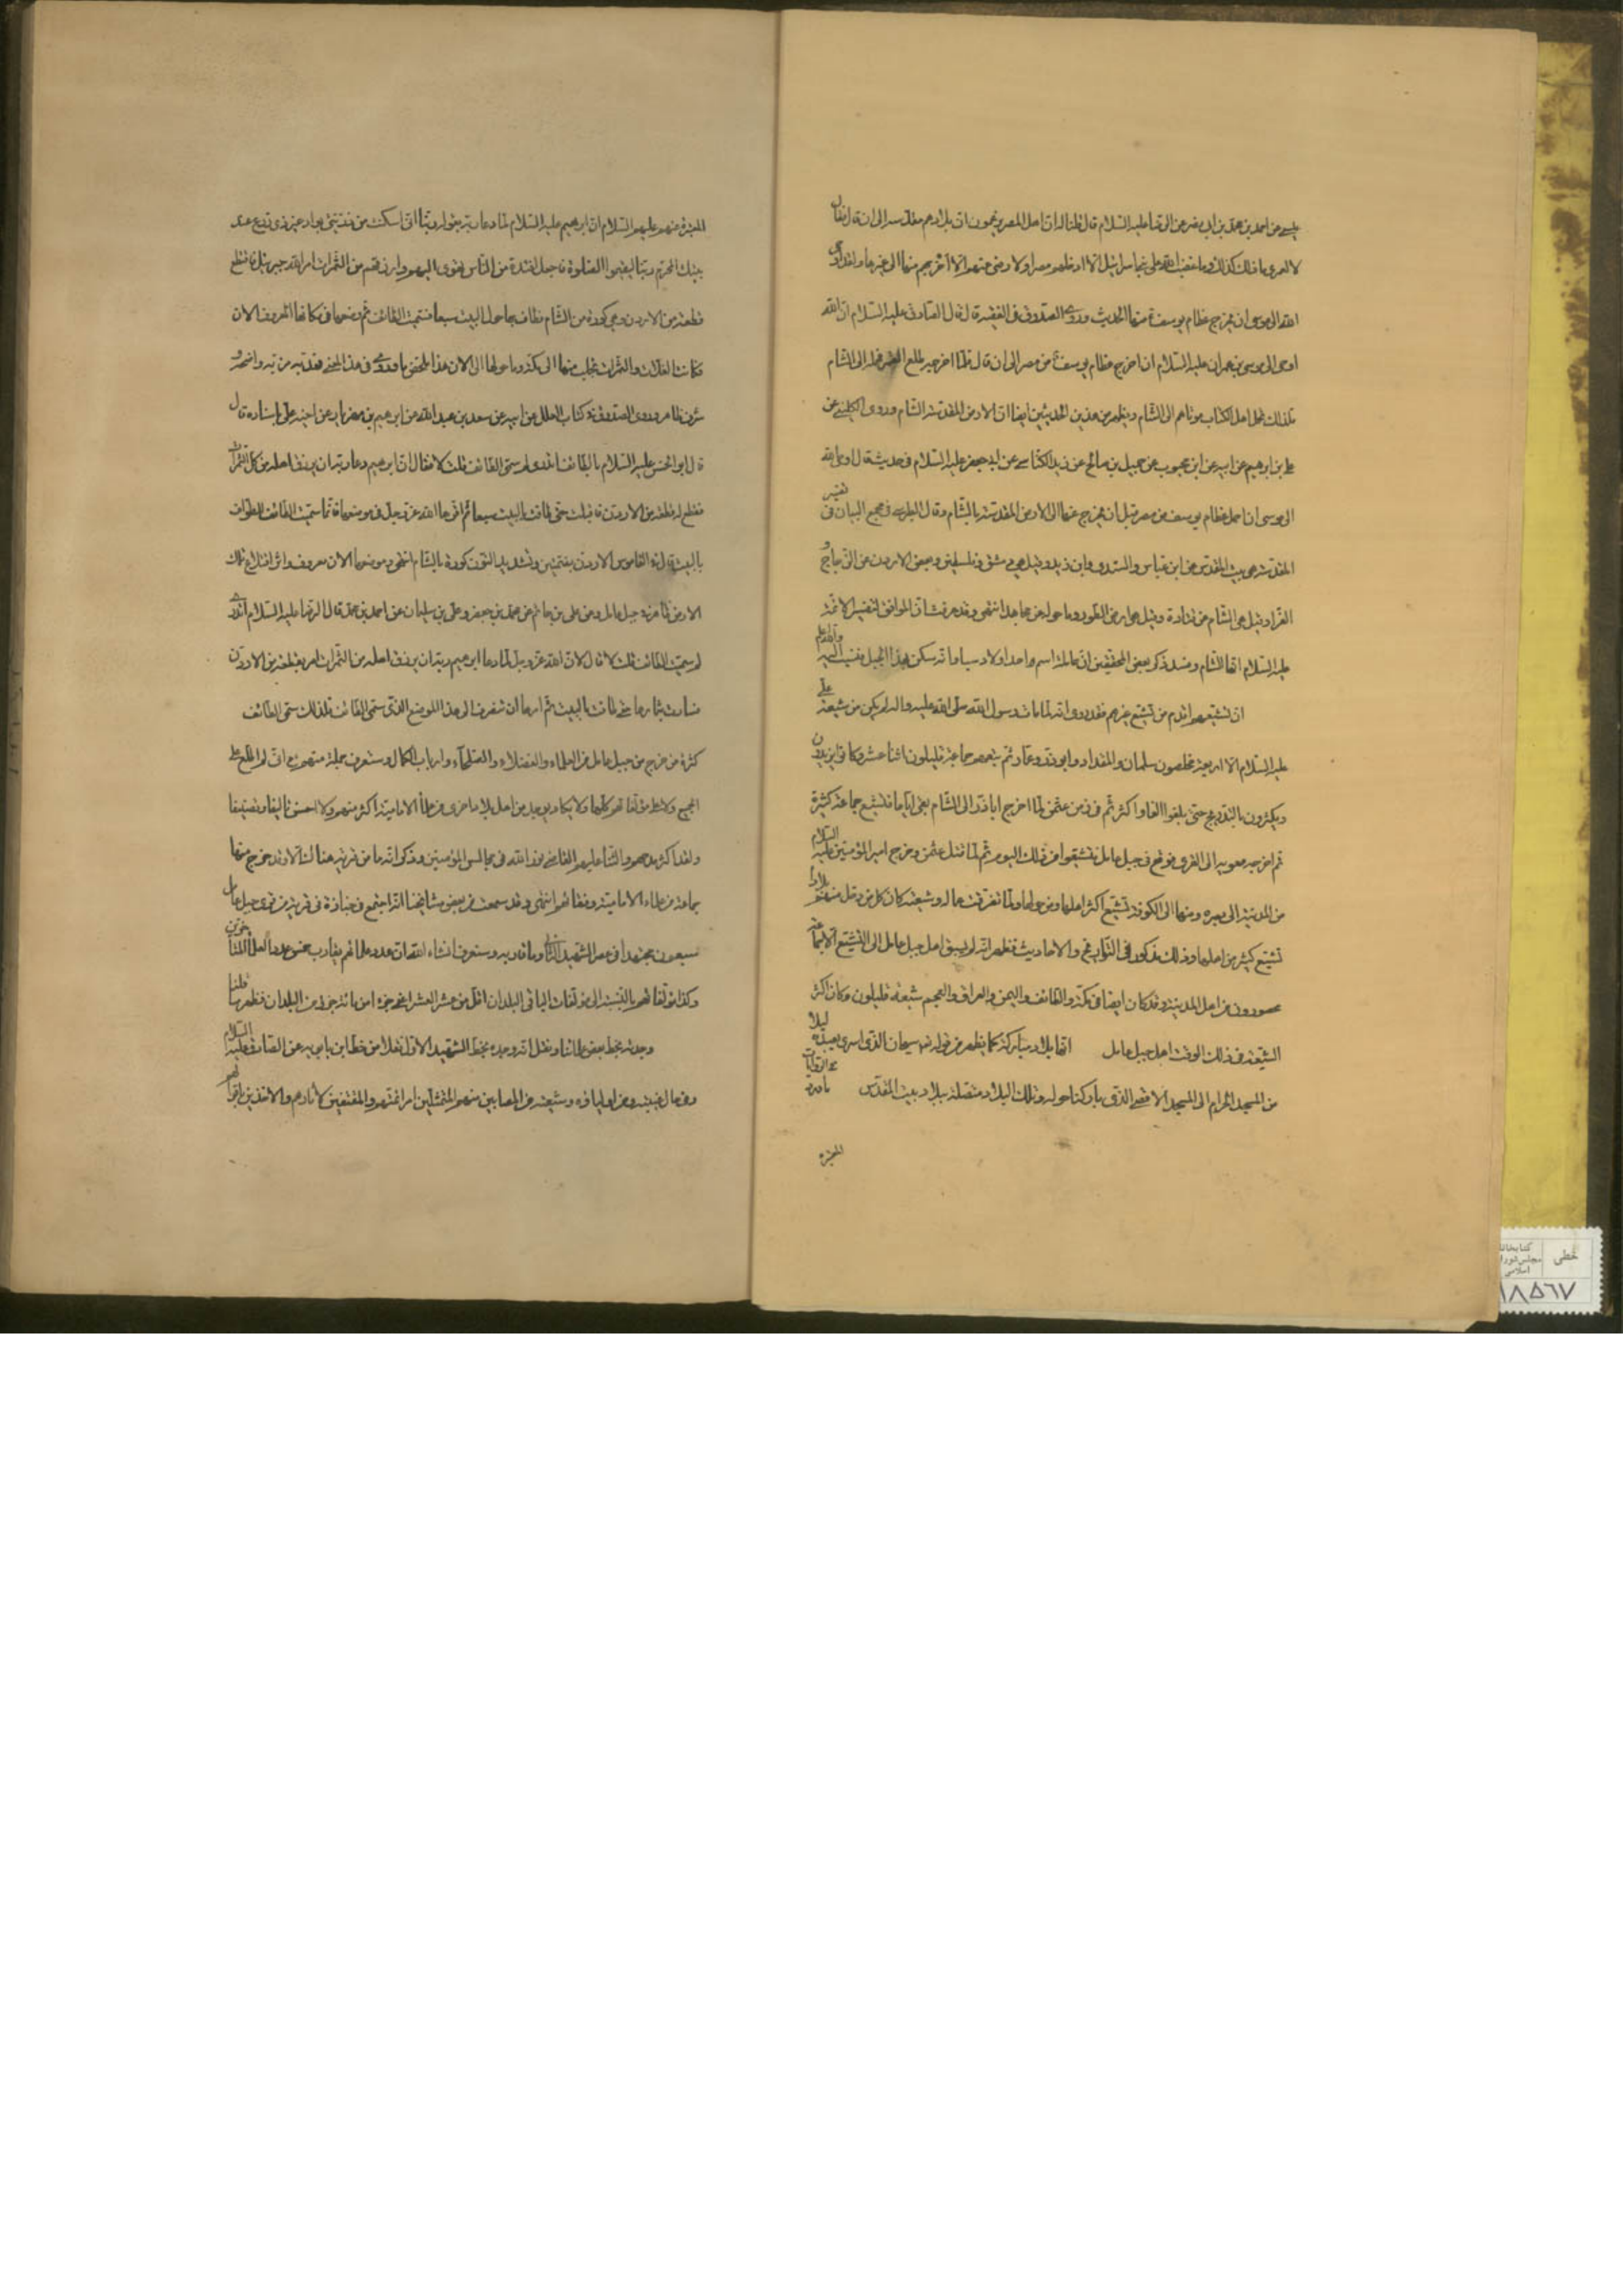 عيسى عن احمد بن محمد بن ابى نصر عن الرضا عليه السلام قال قلنا له ان اهل المصر يزعمون ان بلادهم مقدسه الى ان قال فقال
لا لعمرى ما ذلك كذلك وما غضب الله على بنى اسرائيل الا ادخلهم مصرا ولا رضى عنهم الا اخرجهم منها الى غيرها ولقد اوحى
الله الى موسى ان يخرج عظام يوسف ع منها الحديث وروى الصدوق فى الفقيه قال قال الصادق عليه السلام ان الله
اوحى الى موسى بن عمران عليه السلام ان اخرج عظام يوسف ع من مصر الى ان قال فلما اخرجه طلع القمر فحمله الى الشام
فلذلك تحمل اهل الكتاب موتاهم الى الشام ويظهر من هذين الحديثين ايضا ان الارض المقدسة الشام وروى الكلينى عن
على بن ابرهيم عن ابيه عن ابن محبوب عن جميل بن صالح عن يزيد الكناسى عن ابى جعفر عليه السلام فى حديث قال اوحى الله
الى موسى ان احمل عظام يوسف من مصر قبل ان تخرج عنها الى الارض المقدسة بالشام وقال الطبرسى فى مجمع البيان فى تفسير
المقدسة هى بيت المقدس عن ابن عباس والسدى وابن زيد وقيل هى دمشق وفلسطين وبعض الاردن عن الزجاج و
الفراء وقيل هى الشام عن قتادة وقيل هى ارض الطور وما حوله عن مجاهد انتهى وقد عرفت ان الموافق لتفسير الائمة
عليهم السلام انها الشام وقد ذكر بعض المحققين ان عاملة اسم واحد اولاد سبا وانه سكن هذا الجبل فنسب اليه والله اعلم
ان تشيعهم اقدم من تشيع غيرهم فقد روى انه لما مات رسول الله صلى الله عليه واله لم يكن من شيعة على
عليه السلام الا اربعة مخلصون سلمان والمقداد وابو ذر وعمار ثم تبعهم جماعة قليلون اثنا عشر وكانوا يزيدون
ويكثرون بالتدريج حتى بلغوا الفا واكثر ثم فى زمن عثمن لما اخرج اباذر الى الشام بقى اياما فتشيع جماعة كثيرة
ثم اخرجه معويه الى القرى فوقع فى جبل عامل فتشيعوا من ذلك اليوم ثم لما قتل عثمن وخرج امير المؤمنين عليه السلام
من المدينة الى بصره ومنها الى الكوفة تشيع اكثر اهلها ومن حولها ولما تفرقت عماله وشيعته كان كل من دخل منهم بلادا
تشيع كثير من اهلها وذلك مذكور فى التواريخ والاحاديث فظهر انه لم يسبق اهل جبل عامل الى التشيع الا جماعة
محصورون من اهل المدينة وقد كان ايضا فى مكة والطائف واليمن والعراق والعجم شيعة قليلون وكان اكثر
الشيعة فى ذلك الوقت اهل جبل عامل انها بلاد مباركة كما يظهر من قوله تعا سبحان الذى اسرى بعبده ليلا
من المسجد الحرام الى المسجد الاقصى الذى باركنا حوله وتلك البلاد متصلة ببلاد بيت المقدس ما ورد فى الروايات
المعتبرة
المعتبرة عنهم عليهم السلام ان ابرهيم عليه السلام لما دعا ربه بقوله ربنا انى اسكنت من ذريتى بواد غير ذى زرع عند
بيتك المحرم ربنا ليقيموا الصلوة فاجعل افئدة من الناس تهوى اليهم وارزقهم من الثمرات امر الله جبرئيل فاقتطع
قطعة من الاردن وهى كورة من الشام فطاف بها حول البيت سبعا فسميت الطائف ثم وضعها فى مكانها المعروف الان
فكانت الغلات والثمرات تجلب منها الى مكة وما حولها الى الان هذا ملخص ما روى فى هذا المعنى فقد تبين مرتبه واضحة و
شرف ظاهر وروى الصدوق فى كتاب العلل عن ابيه عن سعد بن عبد الله عن ابرهيم بن مهزيار عن اخيه على باسناده قال
قال ابو الحسن عليه السلام بالطائف اتدرى لم سمى الطائف قلت لا فقال ان ابرهيم دعا ربه ان يرزق اهله من كل الثمرات
فقطع له قطعة من الاردن فاقبلت حتى طافت بالبيت سبعا ثم اقرها الله عز وجل فى موضعها فانما سميت الطائف للطواف
بالبيت قال فى القاموس الاردن بضمتين وتشديد النون كورة بالشام انتهى وموضعها الان معروف واثر اقتلاع تلك
الارض ظاهر فى جبل عامل وعن على بن حاتم عن محمد بن جعفر وعلى بن سليمان عن احمد بن محمد قال قال الرضا عليه السلام اتدرى
لم سميت الطائف قلت لا قال لان الله عز وجل لما دعا ابرهيم ربه ان يرزق اهله من الثمرات امر بقطعة من الاردن
فسارت بثمارها حتى طافت بالبيت ثم امرها ان تنصرف الى هذا الموضع الذى سمى الطائف فلذلك سمى الطائف
كثرة من خرج من جبل عامل من العلماء والفضلاء والصلحاء وارباب الكمال وستعرف جملة منهم مع انى لم اطلع على
الجميع ولا على مؤلفاتهم كلها ولا يكاد يوجد من اهل بلاد اخرى من علماء الامامية اكثر منهم ولا احسن تاليفا وتصنيفا
ولقد اكثر مدحهم والثناء عليهم القاضى نور الله فى مجالس المؤمنين وذكر انه ما من قرية هناك الا وقد خرج منها
جماعة من علماء الامامية وفقهائهم انتهى وقد سمعت من بعض مشايخنا انه اجتمع فى جنازة فى قرية من قرى جبل عامل
سبعون مجتهدا فى عصر الشهيد الثانى وما قاربه وستعرف انشاء الله ان عدد علمائهم يقارب خمس عدد العلماء المتاخرين
وكذا مؤلفاتهم بالنسبة الى مؤلفات الباقى مع ان بلدهم بالنسبة الى باقى البلدان اقل من عشر العشر اعنى جزء من مائة جزء من البلدان فظهر ما قلنا
وجدته بخط بعض علمائنا ونقل انه وجده بخط الشهيد الاول نقلا من خط ابن بابويه عن الصادق عليه السلام